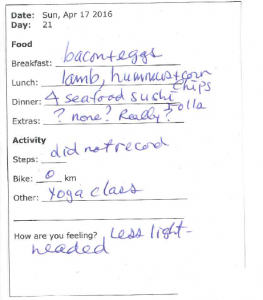 Date: Sun, Apr 17 2016
Day: 21
Food
Breakfast: bacon+eggs
Lunch: lamb, hummus+corn chips
Dinner: 4 seafood sushi rolls
Extras: ? none? Really?
Activity
Steps: did not record
Bike: 0 km
Other: Yoga class
How are you feeling? Less light-
headed